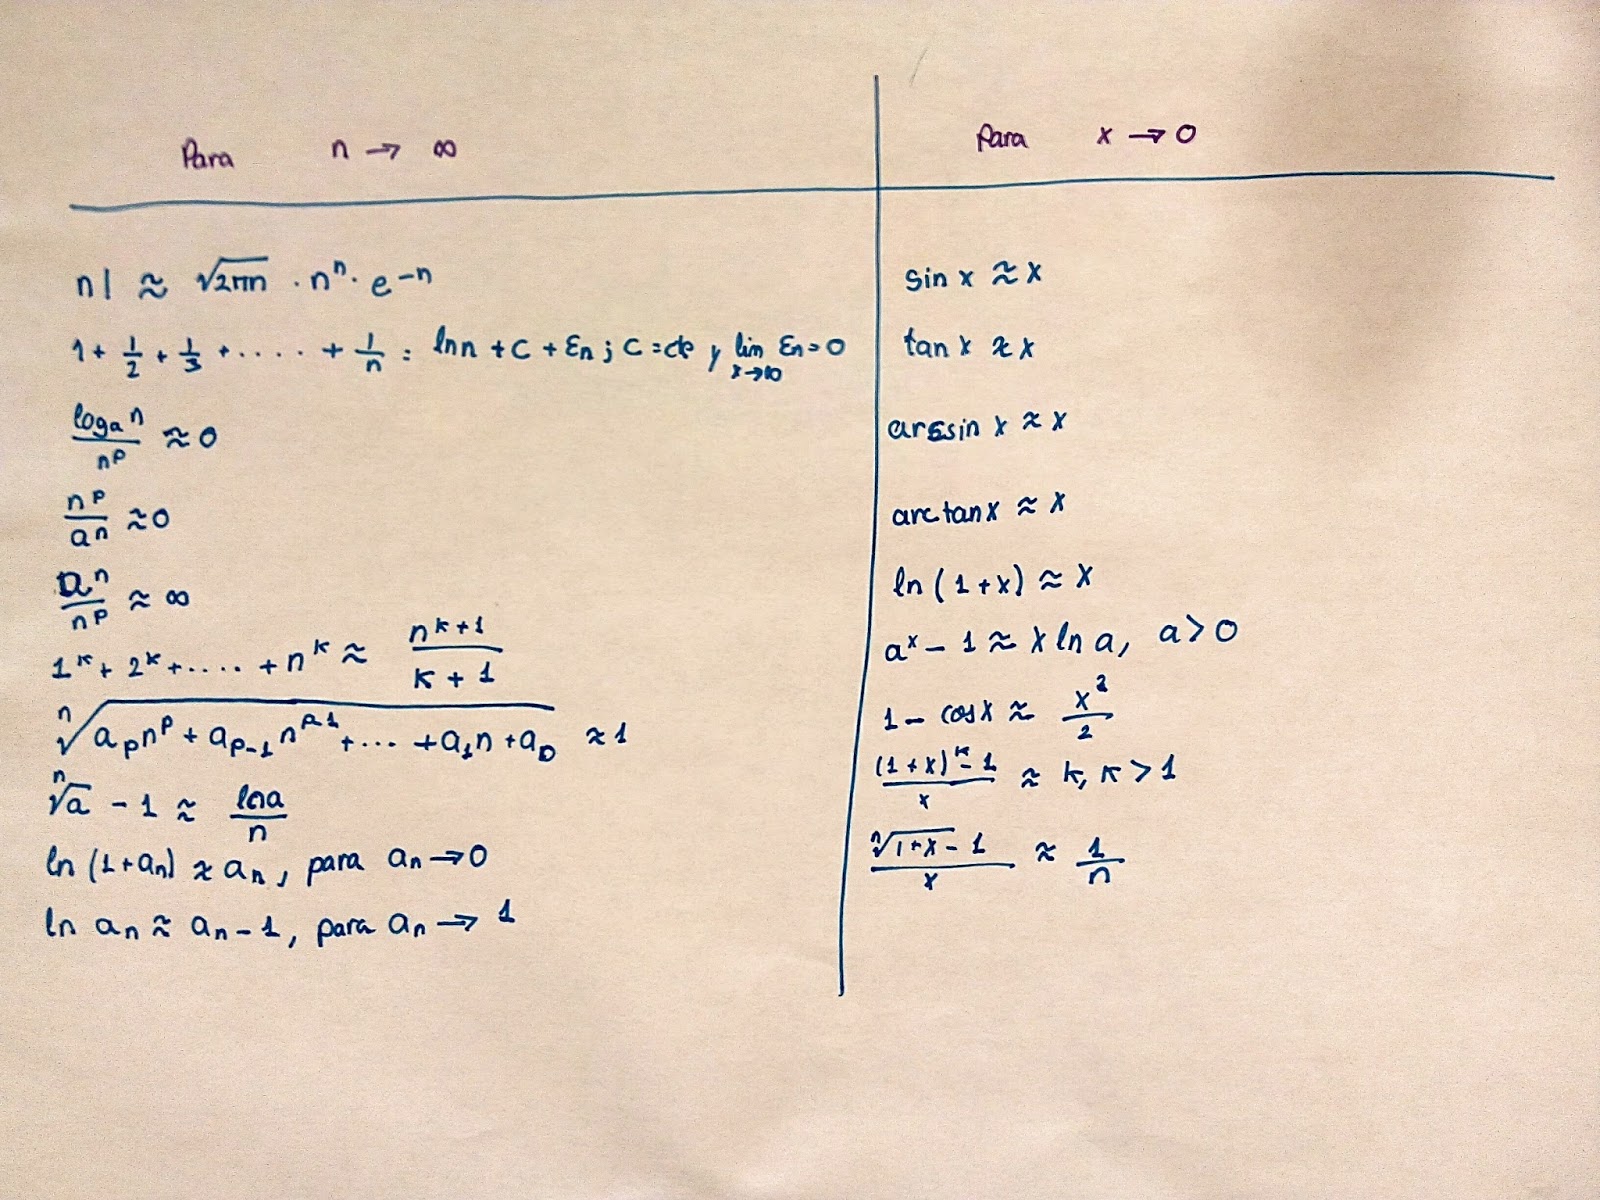 Para n → ∞
n! ≈ √2πn · nⁿ · e⁻ⁿ
1 + 1/2 + 1/3 + .... + 1/n = ln n + C + εn ; C = cte y lim x→∞ εn = 0
logₐ n / nᵖ ≈ 0
nᵖ / aⁿ ≈ 0
aⁿ / nᵖ ≈ ∞
1ᵏ + 2ᵏ + .... + nᵏ ≈ nᵏ⁺¹ / (k + 1)
ⁿ√(aₚnᵖ + aₚ₋₁nᵖ⁻¹ + ... + a₁n + a₀) ≈ 1
ⁿ√a - 1 ≈ ln a / n
ln (1 + aₙ) ≈ aₙ, para aₙ → 0
ln aₙ ≈ aₙ - 1, para aₙ → 1
Para x → 0
sin x ≈ x
tan x ≈ x
arcsin x ≈ x
arctan x ≈ x
ln (1 + x) ≈ x
aˣ - 1 ≈ x ln a, a > 0
1 - cos x ≈ x² / 2
((1 + x)ᵏ - 1) / x ≈ k, k > 1
(ⁿ√(1 + x) - 1) / x ≈ 1 / n